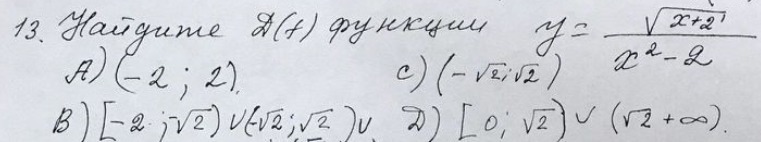 13. Найдите D(f) функции y = √(x+2) / (x² - 2)
A) (-2 ; 2). C) (-√2; √2)
B) [-2 ; -√2) ∪ (-√2; √2) ∪ D) [0; √2) ∪ (√2 + ∞).